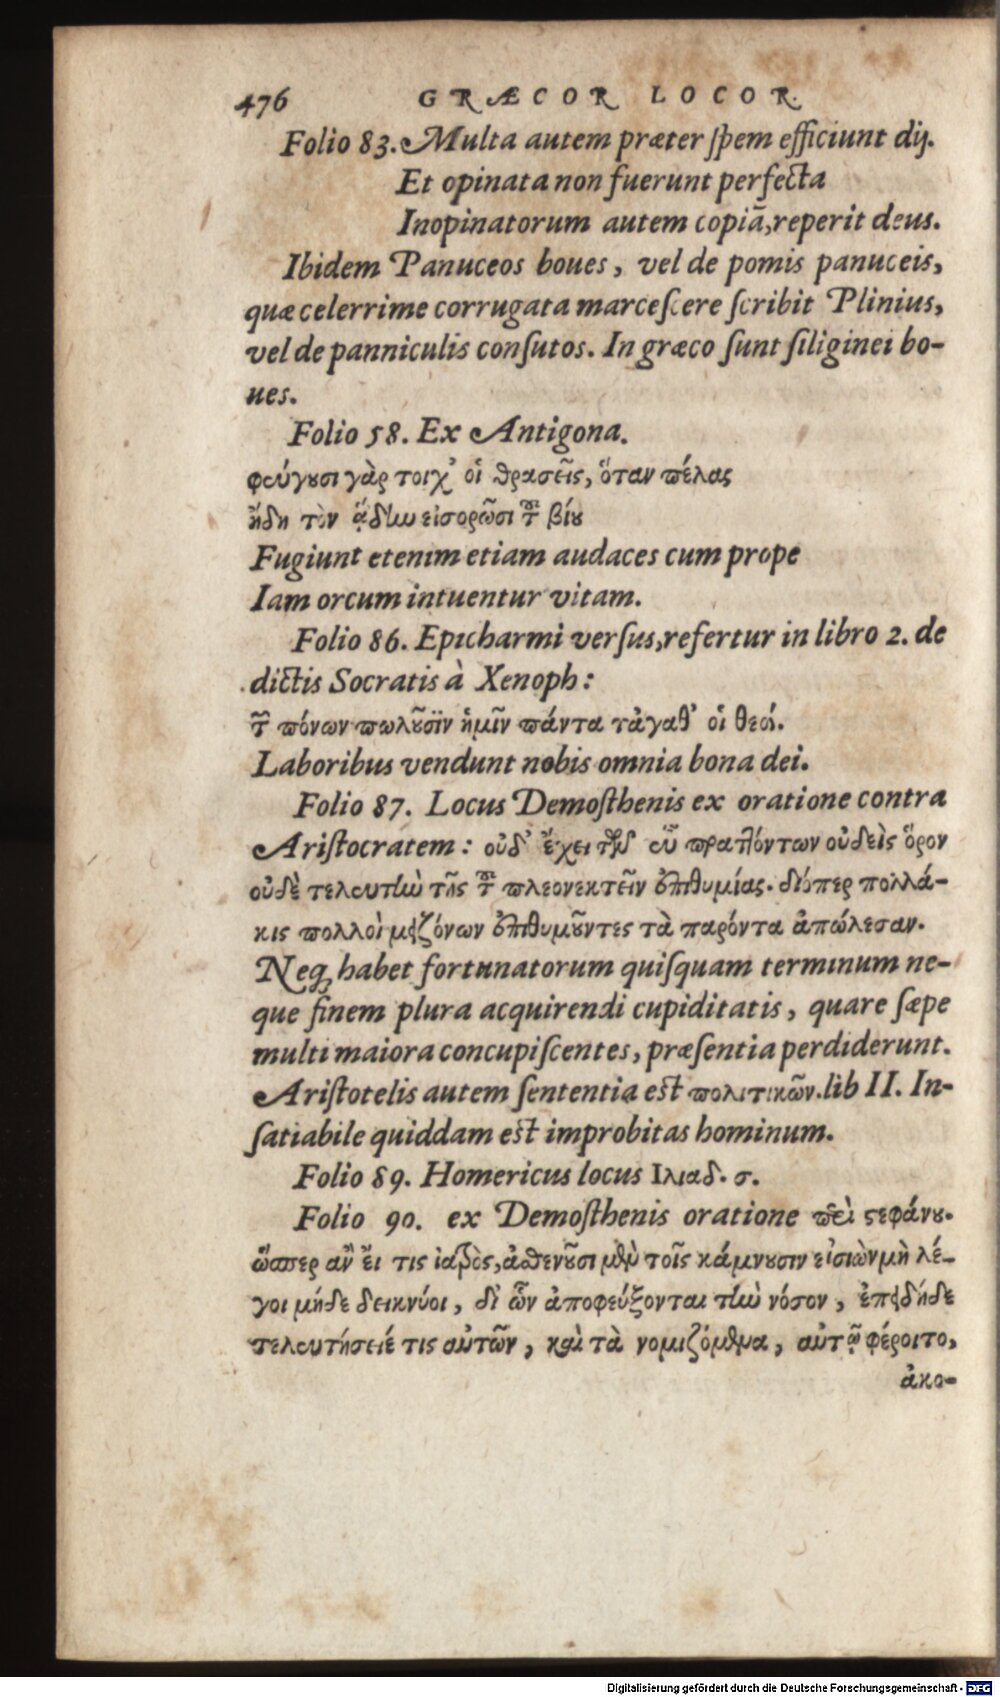 476 GRÆCOR LOCOR.
Folio 83. Multa autem præter ſpem efficiunt dij.
Et opinata non fuerunt perfecta
Inopinatorum autem copiā, reperit deus.
Ibidem Panuceos boues, vel de pomis panuceis,
quæ celerrime corrugata marceſcere ſcribit Plinius,
vel de panniculis conſutos. In græco ſunt ſiliginei bo-
ues.
Folio 58. Ex Antigona.
φεύγουσι γὰρ τοιχ’ οἱ θρασεῖς, ὅταν πέλας
ἤδη τὸν ᾅδην εἰσορῶσι τοῦ βίου
Fugiunt etenim etiam audaces cum prope
Iam orcum intuentur vitam.
Folio 86. Epicharmi verſus, refertur in libro 2. de
dictis Socratis à Xenoph:
τῶν πόνων πωλοῦσϊν ἡμῖν πάντα τἀγαθ’ οἱ θεοί.
Laboribus vendunt nobis omnia bona dei.
Folio 87. Locus Demoſthenis ex oratione contra
Ariſtocratem: οὐδ’ ἔχει τῶν εὖ πραττόντων οὐδεὶς ὅρον
οὐδὲ τελευτὴν τῆς τοῦ πλεονεκτεῖν ἐπιθυμίας. διόπερ πολλά-
κις πολλοὶ μειζόνων ἐπιθυμοῦντες τὰ παρόντα ἀπώλεσαν.
Neq; habet fortunatorum quiſquam terminum ne-
que finem plura acquirendi cupiditatis, quare ſæpe
multi maiora concupiſcentes, præſentia perdiderunt.
Ariſtotelis autem ſententia eſt πολιτικῶν. lib II. In-
ſatiabile quiddam eſt improbitas hominum.
Folio 89. Homericus locus Ιλιαδ. σ.
Folio 90. ex Demoſthenis oratione περὶ ϛεφάνου.
ὥσπερ ἂν ἔι τις ἰατρὸς, ἀσθενοῦσι μὲν τοῖς κάμνουσιν εἰσιὼν μὴ λέ-
γοι μήδε δεικνύοι, δι’ ὧν ἀποφεύξονται τὴν νόσον, ἐπειδήδε
τελευτήσειέ τις αὐτῶν, καὶ τὰ νομιζόμενα, αὐτῷ φέροιτο,
ἀκο-
Digitalisierung gefördert durch die Deutsche Forschungsgemeinschaft - DFG